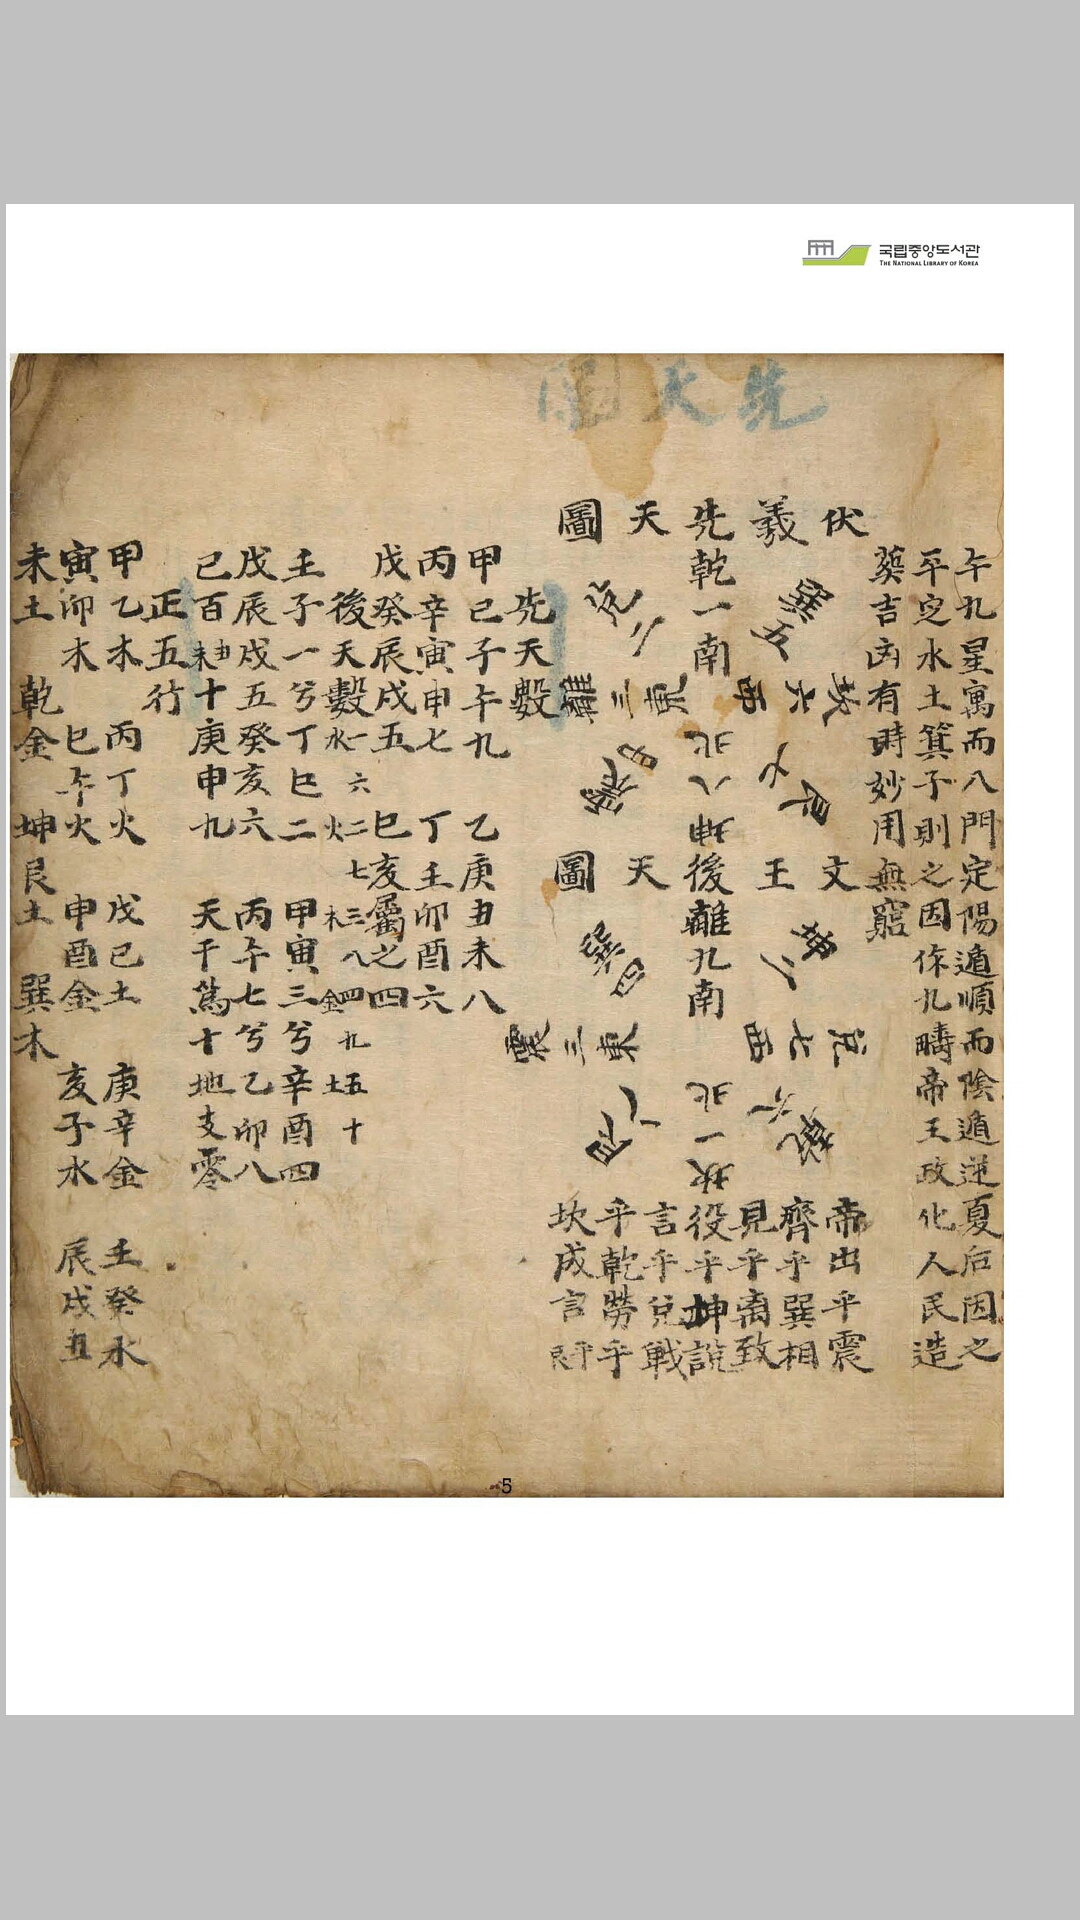 국립중앙도서관
THE NATIONAL LIBRARY OF KOREA
先天圖
午九星寓而八門定陽遁順而陰遁逆夏后因之
平定水土箕子則之因作九疇帝王政化人民造
葬吉凶有時妙用無窮
伏羲先天圖
乾一南
巽五
坎六西
艮七
北八坤
震四
離三東
兌二
文王後天圖
離九南
坤二
兌七西
乾六
北一坎
艮八
震三東
巽四
帝出乎震
齊乎巽相
見乎离致
役乎坤說
言乎兌戰
乎乾勞乎
坎成言乎艮
先天數
甲己子午九 乙庚丑未八
丙辛寅申七 丁壬卯酉六
戊癸辰戌五 巳亥屬之四
後天數 一六水 二七火 三八木 四九金 五十土
壬子一兮丁巳二 甲寅三兮辛酉四
戊辰戌五癸亥六 丙午七兮乙卯八
己百丑未十庚申九 天干篤十地支零
正五行
甲乙木 丙丁火 戊己土 庚辛金 壬癸水
寅卯木 巳午火 申酉金 亥子水 辰戌丑
未土 乾金 坤艮土 巽木
5